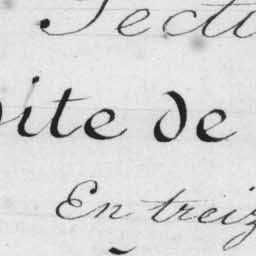 Secti
ite de
En treiz